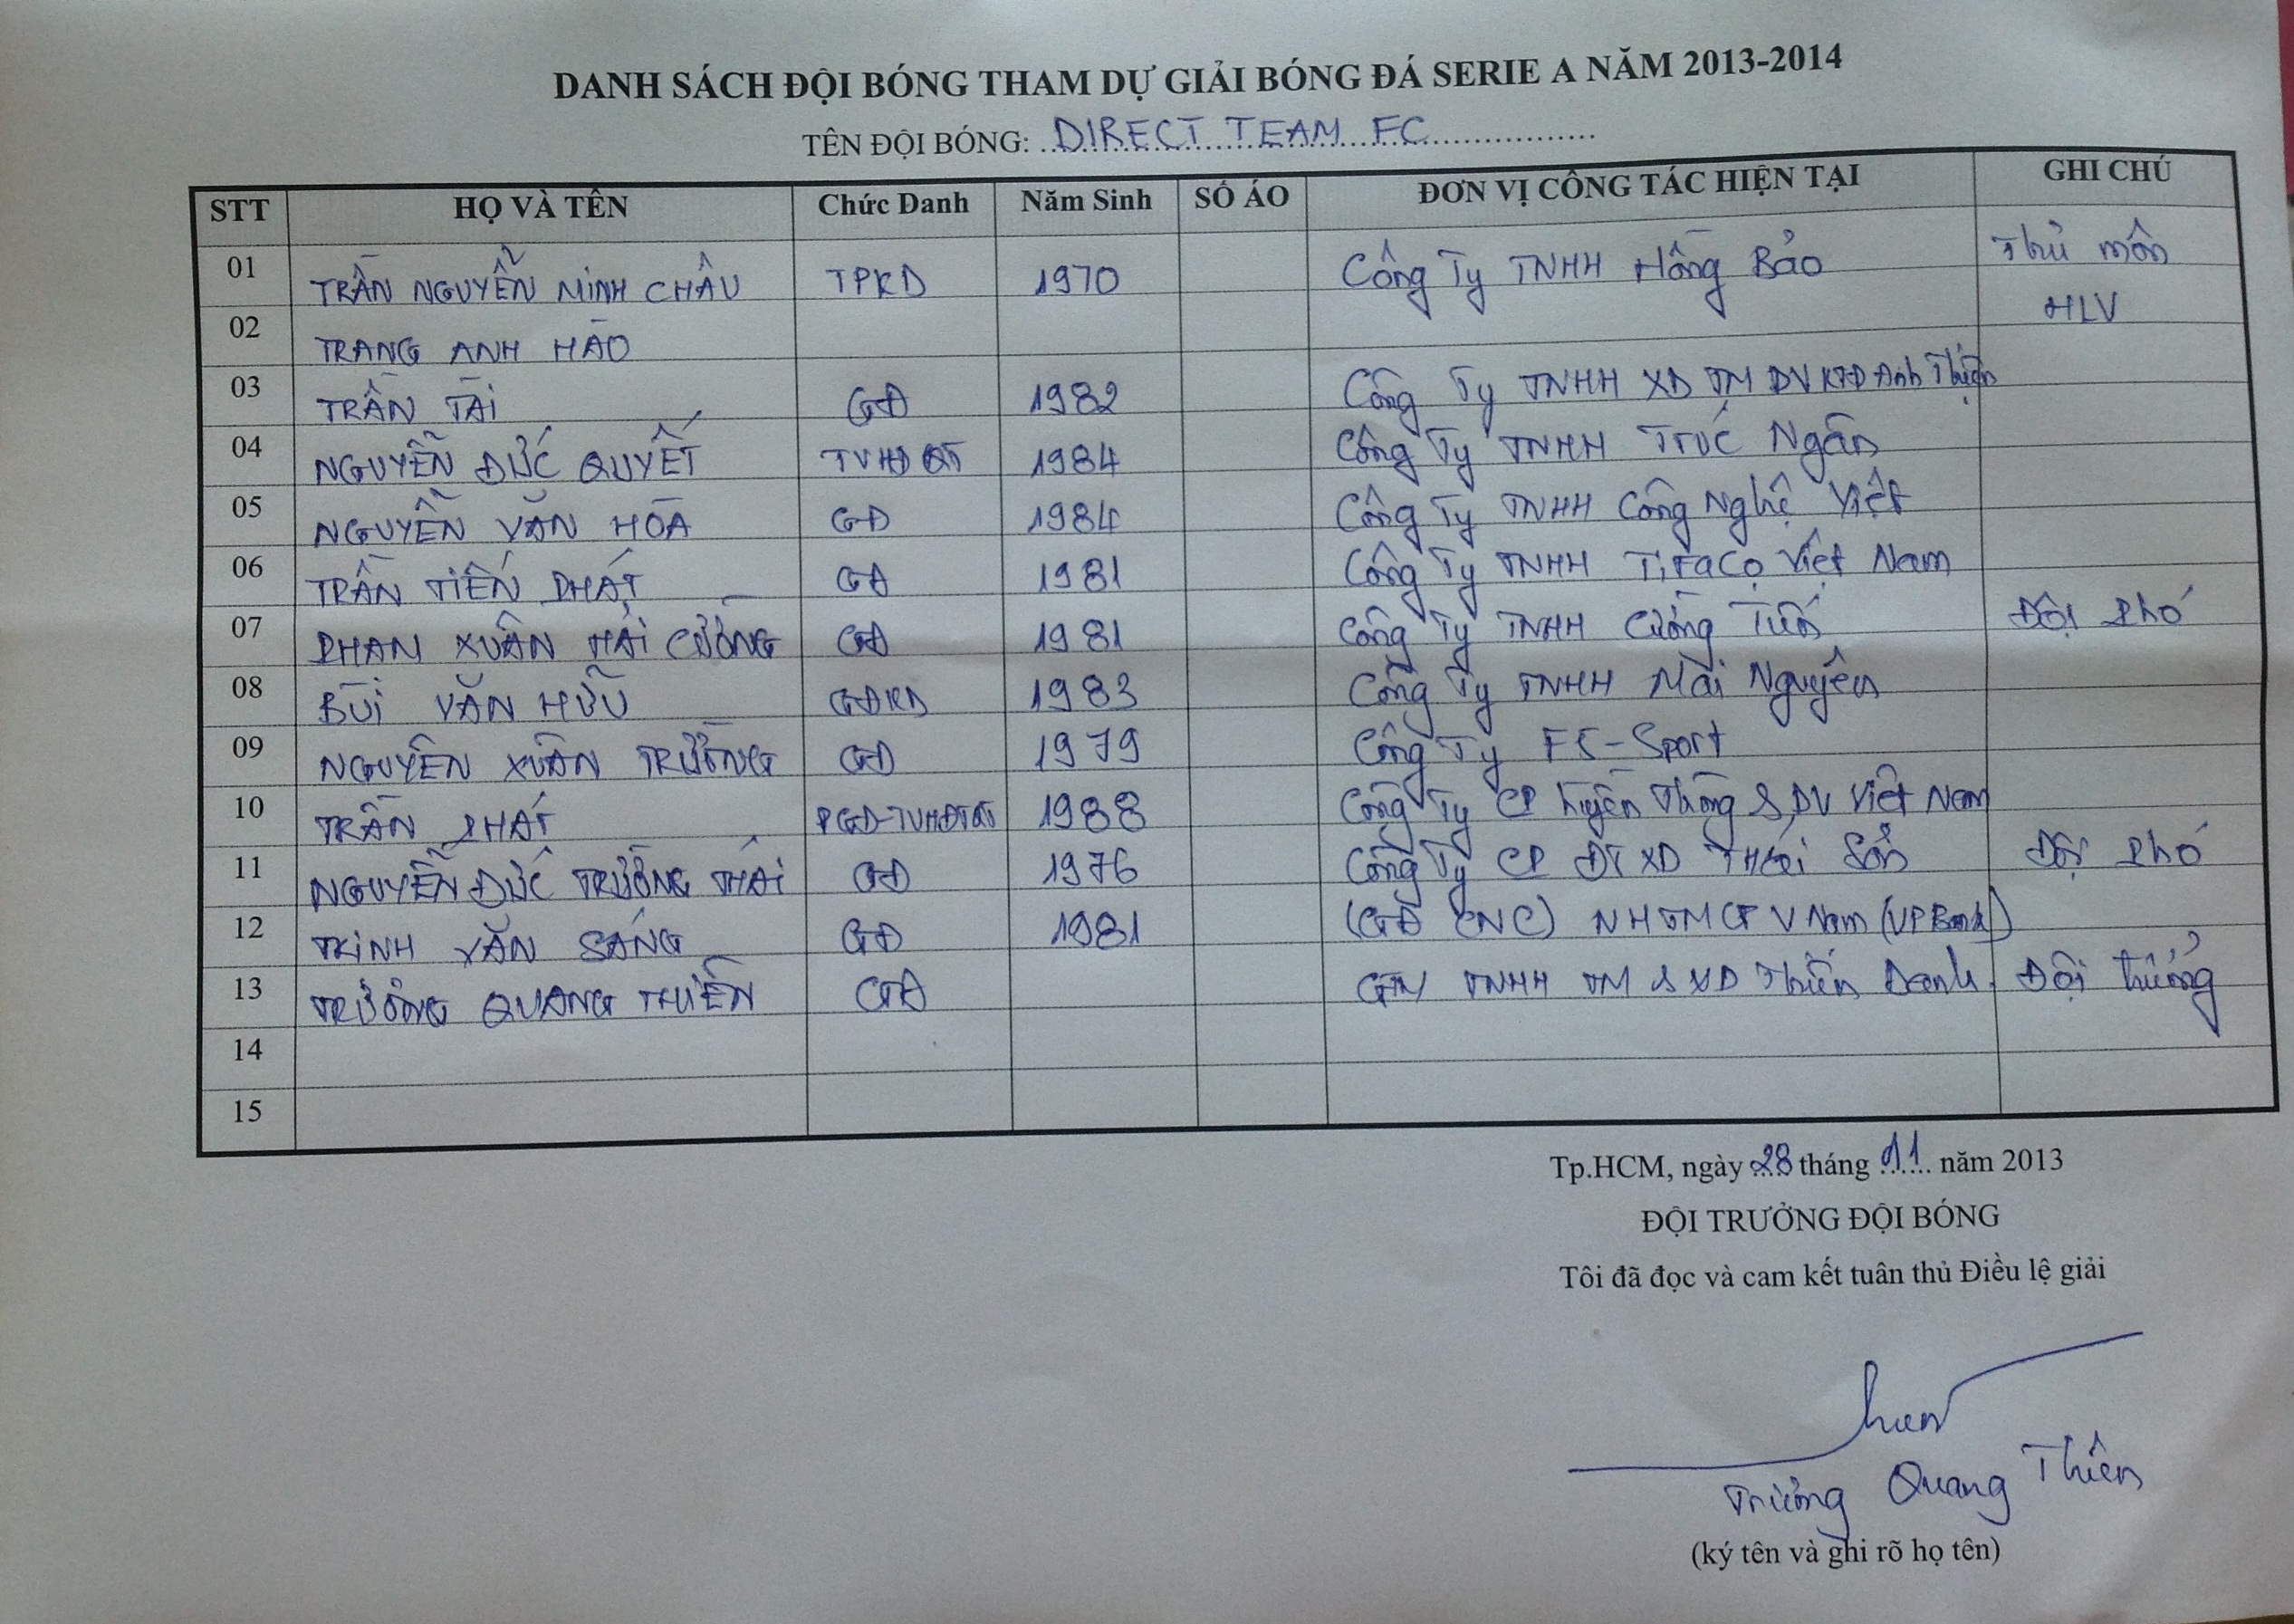 DANH SÁCH ĐỘI BÓNG THAM DỰ GIẢI BÓNG ĐÁ SERIE A NĂM 2013-2014
TÊN ĐỘI BÓNG: DIRECT TEAM FC
STT HỌ VÀ TÊN Chức Danh Năm Sinh SỐ ÁO ĐƠN VỊ CÔNG TÁC HIỆN TẠI GHI CHÚ
01 TRẦN NGUYỄN MINH CHÂU TPKD 1970 Công Ty TNHH Hồng Bảo Thủ môn
02 TRANG ANH HÀO HLV
03 TRẦN TÀI GĐ 1982 Công Ty TNHH XD TM DV Anh Thiện
04 NGUYỄN ĐỨC QUYẾT 1984 Công Ty TNHH Trúc Ngân
05 NGUYỄN VĂN HÒA GĐ 1984 Công Ty TNHH Công Nghệ Việt
06 TRẦN TIẾN PHÁT GĐ 1981 Công Ty TNHH Tifaco Việt Nam
07 PHAN XUÂN HẢI CƯỜNG GĐ 1981 Công Ty TNHH Cường Tiến Đội Phó
08 BÙI VĂN HỮU GĐKD 1983 Công Ty TNHH Mai Nguyên
09 NGUYỄN XUÂN TRƯỜNG GĐ 1979 Công Ty FS-Sport
10 TRẦN PHÁT 1988 Công Ty CP truyền thông & DV Việt Nam
11 NGUYỄN ĐỨC TRƯỜNG THÁI GĐ 1976 Công Ty CP ĐT XD THái Sơn Đội Phó
12 TRỊNH VĂN SÁNG GĐ 1981 (GĐ CNC) NHTMCP V Nam (VPBank)
13 TRƯƠNG QUANG THIÊN GĐ CTy TNHH TM & XD Thiên Danh Đội trưởng
14
15
Tp.HCM, ngày 28 tháng 11 năm 2013
ĐỘI TRƯỞNG ĐỘI BÓNG
Tôi đã đọc và cam kết tuân thủ Điều lệ giải
Trương Quang Thiên
(ký tên và ghi rõ họ tên)